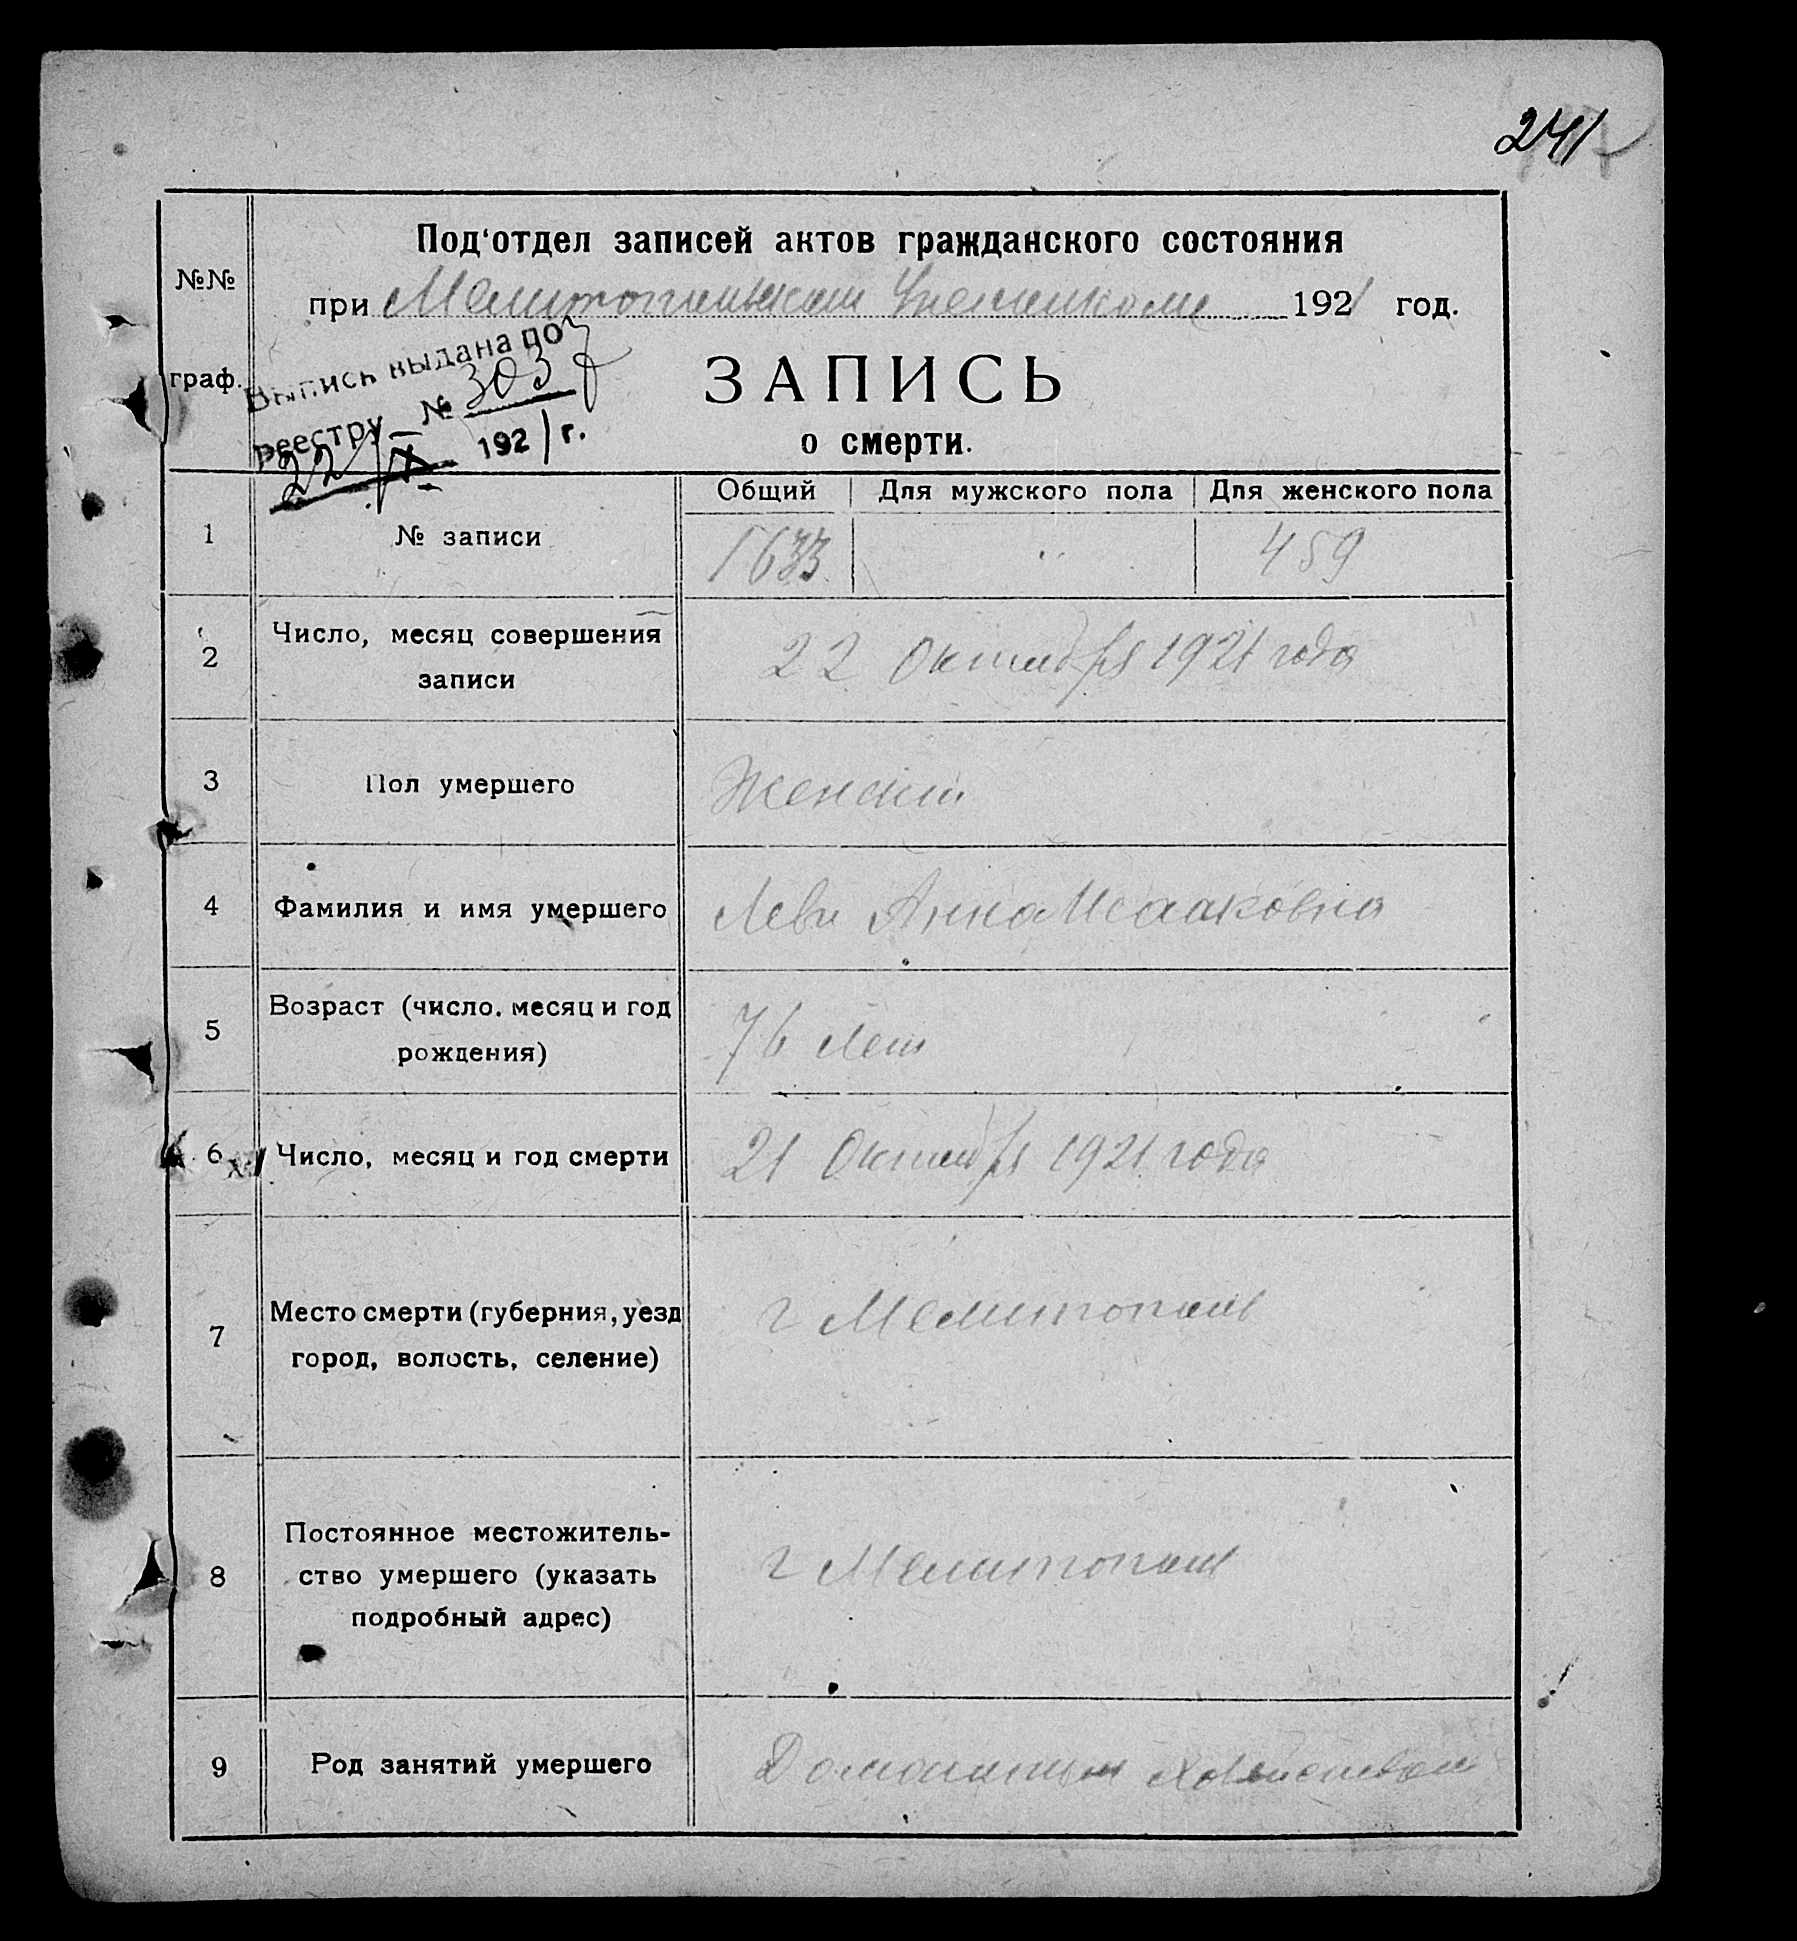 241
Под‘отдел записей актов гражданского состояния
№№
при Мелитопольском Уисполкоме 1921 год.
Выпись выдана по
граф.
реестру № 3037
22/X 1921 г.
ЗАПИСЬ
о смерти.
Общий Для мужского пола Для женского пола
1 № записи 1633 " 459
2 Число, месяц совершения
записи
22 Октября 1921 года
3 Пол умершего Женский
4 Фамилия и имя умершего Леви Анна Исааковна
5 Возраст (число, месяц и год
рождения)
76 лет
6 Число, месяц и год смерти 21 Октября 1921 года
7 Место смерти (губерния, уезд
город, волость, селение)
г Мелитополь
8 Постоянное местожитель-
ство умершего (указать
подробный адрес)
г Мелитополь
9 Род занятий умершего Домашним хозяйством